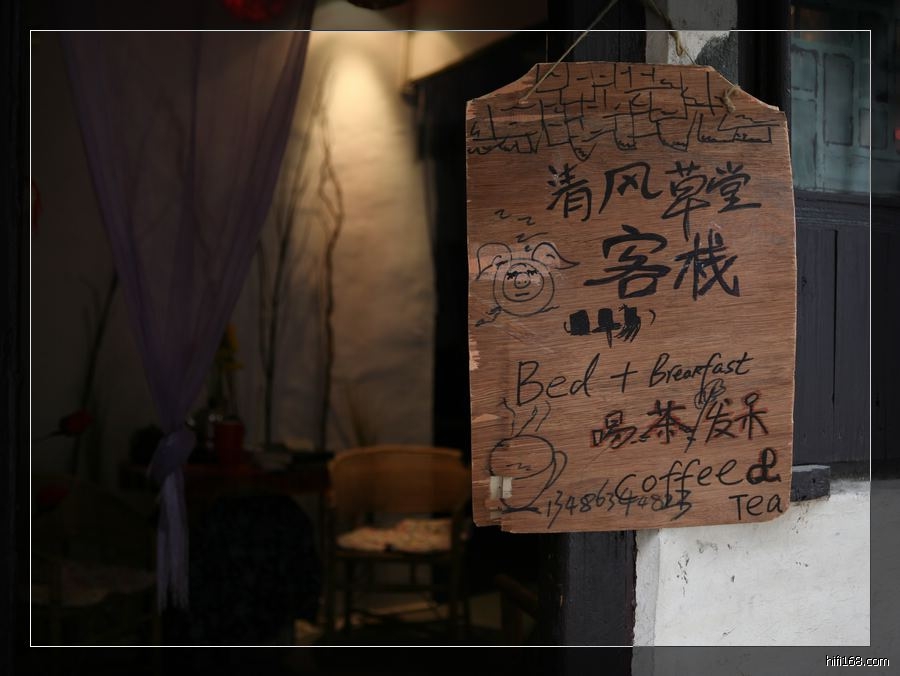 清风草堂
客栈
Bed + Breakfast
喝茶/发呆
Coffee &
Tea
hifi168.com